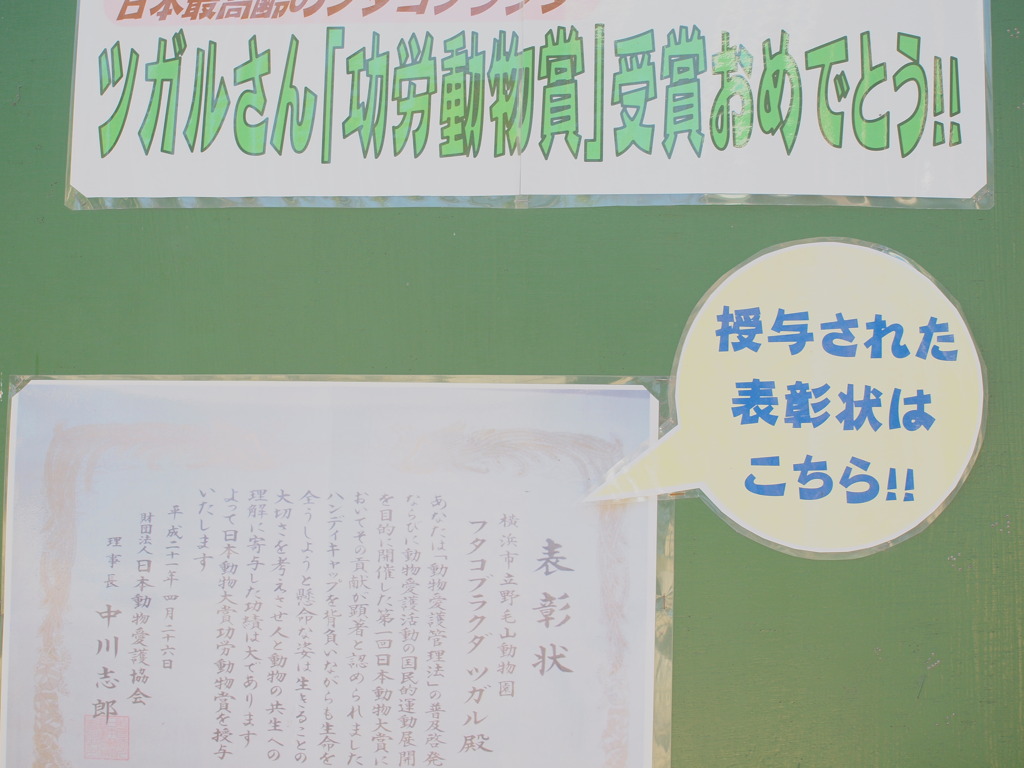 日本最高齢のフタコブラクダ
ツガルさん「功労動物賞」受賞おめでとう!!
授与された
表彰状は
こちら!!
表彰状
横浜市立野毛山動物園
フタコブラクダ ツガル殿
あなたは「動物愛護管理法」の普及啓発
ならびに動物愛護活動の国民的運動展開
を目的に開催した第一回日本動物大賞に
おいてその貢献が顕著と認められました
ハンディキャップを背負いながらも生命を
全うしようと懸命な姿は生きることの
大切さを考えさせ人と動物の共生への
理解に寄与した功績は大であります
よって日本動物大賞功労動物賞を授与
いたします
平成二十一年四月二十六日
財団法人日本動物愛護協会
理事長 中川志郎